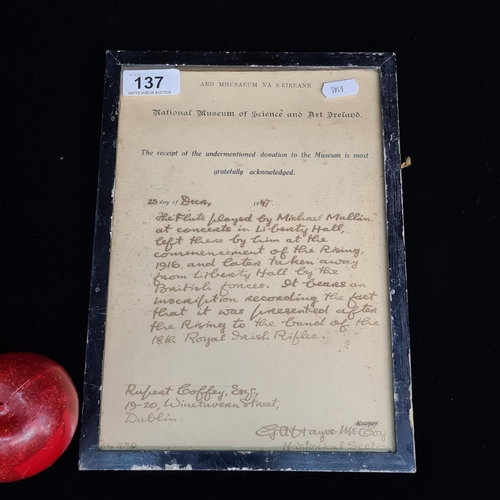 137
SOUTH DUBLIN AUCTION
ARD MHUSAEUM NA h-EIREANN
National Museum of Science and Art Ireland.
The receipt of the undermentioned donation to the Museum is most
gratefully acknowledged.
23 day of Decr, 1947
The Flute played by Michael Mullin
at concerts in Liberty Hall,
left there by him at the
commencement of the Rising,
1916, and later taken away
from Liberty Hall by the
British forces. It bears an
inscription recording the fact
that it was presented after
the Rising to the band of the
18th Royal Irish Rifles.
Rupert Coffey, Esq.,
19-20, Winetavern Street,
Dublin.
G A Hayes-McCoy
Historical Section